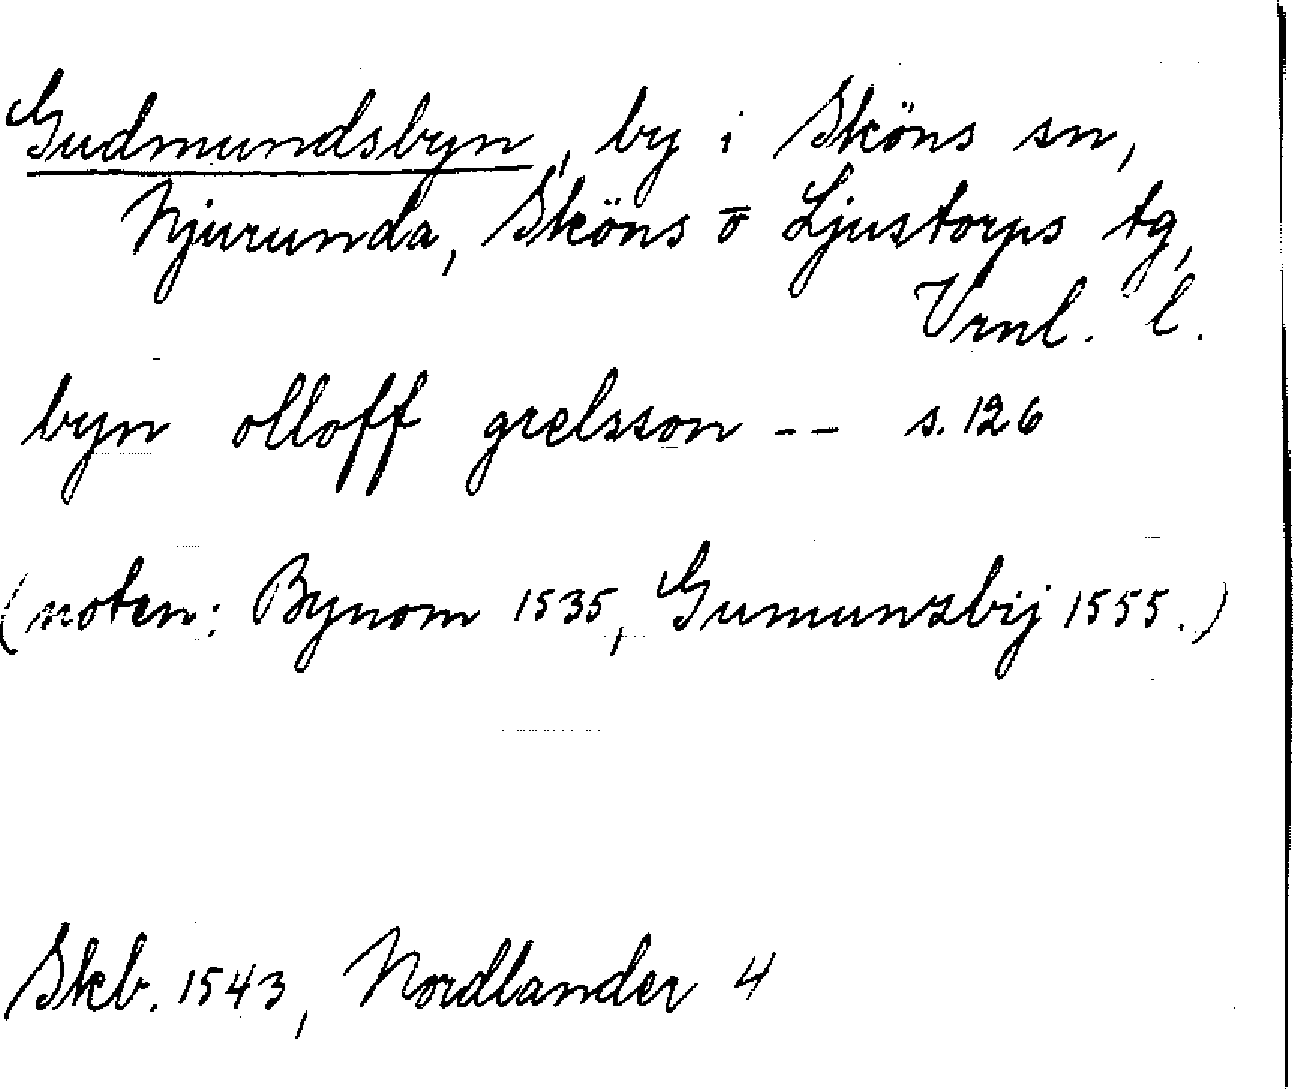 Gudmundsbyn, by i Sköns sn,
Njurunda, Sköns o Ljustorps tg,
Vrnl. l.
byn olloff grelsson -- s. 126
(noten: Bynom 1535, Gumunszbij 1555.)
Skb. 1543, Nordlander 4